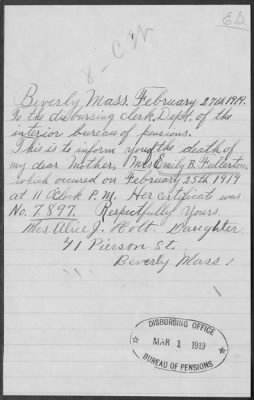 ED
8-CW
Beverly Mass. February 27th 1919.
To the disbursing clerk, Dept. of the
interior bureau of pensions.
This is to inform you of the death of
my dear Mother, Mrs Emily B. Fullerton,
which occused on February 25th 1919
at 11 O'clock P.M. Her certificate was
No. 7.897. Respectfully Yours
Mrs Alice J. Holt. Daughter
41 Pierson St.
Beverly Mass.
DISBURSING OFFICE
MAR 1 1919
BUREAU OF PENSIONS